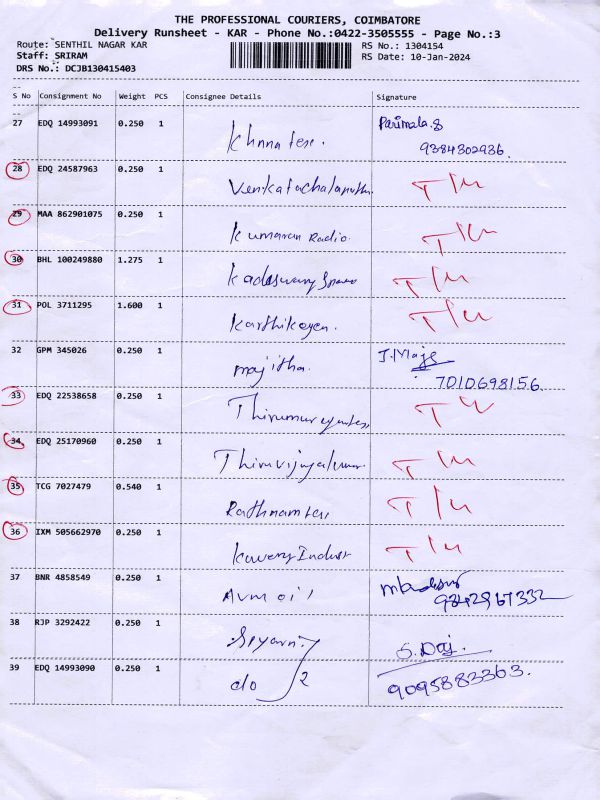 THE PROFESSIONAL COURIERS, COIMBATORE
Delivery Runsheet - KAR - Phone No.:0422-3505555 - Page No.:3
Route: SENTHIL NAGAR KAR RS No.: 1304154
Staff: SRIRAM RS Date: 10-Jan-2024
DRS No.: DCJB130415403
S No Consignment No Weight PCS Consignee Details Signature
27 EDQ 14993091 0.250 1 Parimala.S
9384302936.
28 EDQ 24587963 0.250 1
29 MAA 862901075 0.250 1 Kumaran Radio.
30 BHL 100249880 1.275 1
31 POL 3711295 1.600 1 Karthikeyen.
32 GPM 345026 0.250 1 majitha.
7010698156.
33 EDQ 22538658 0.250 1
34 EDQ 25170960 0.250 1 Thiruvijayakumar
35 TCG 7027479 0.540 1
36 IXM 505662970 0.250 1 Kavery Indust
37 BNR 4858549 0.250 1 AVM oil
9842967332
38 RJP 3292422 0.250 1 S. Daj.
39 EDQ 14993090 0.250 1 do 2 9095883363.